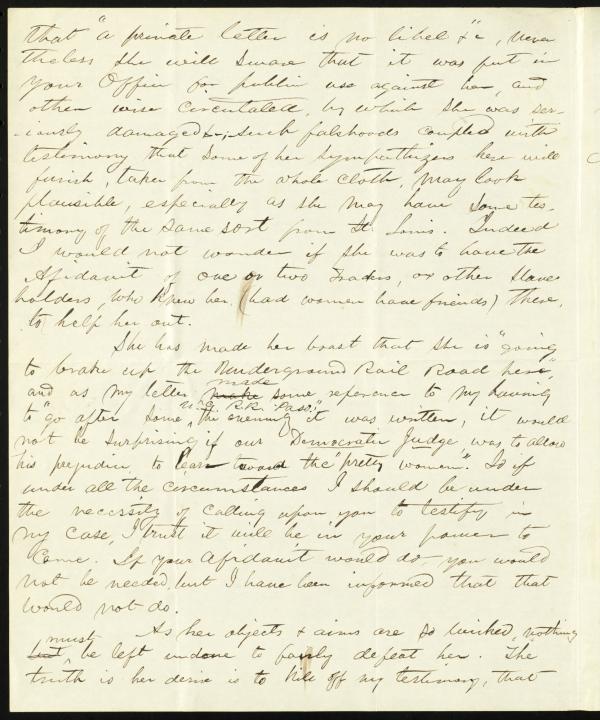 that "a private letter is no libel &c, never
theless she will sware that it was put in
your Office for public use against her, and
other wise circutaled, by which she was ser-
iously damaged &c; such falshoods coupled with
testimony that some of her sympathizers here will
furish, taken from the whole cloth, may look
plausible, especially as she may have some tes-
timony of the same sort from St. Louis. Indeed
I would not wonder if she was to have the
Afidavit of one or two Traders, or other slave
holders, who knew her (bad women have friends) there,
to help her out.
She has made her boast that she is "going
to brake up the Underground Rail Road here",
made
and as my letter make some reference to my having
U.G. R.R. Pass."
to "go after some, the evening it was written, it would
not be surprising if our Democratic Judge was to allow
his prejudice to lean toward the "pretty women". So if
under all the circumstances I should be under
the necessity of calling upon you to testify in
my case, I trust it will be in your power to
come. If your Afidavit would do, you would
not be needed, but I have been informed that that
would not do.
As her objects & aims are so wicked, nothing
must
be left undone to fairly defeat her. The
truth is her desire is to kill off my testimony, that